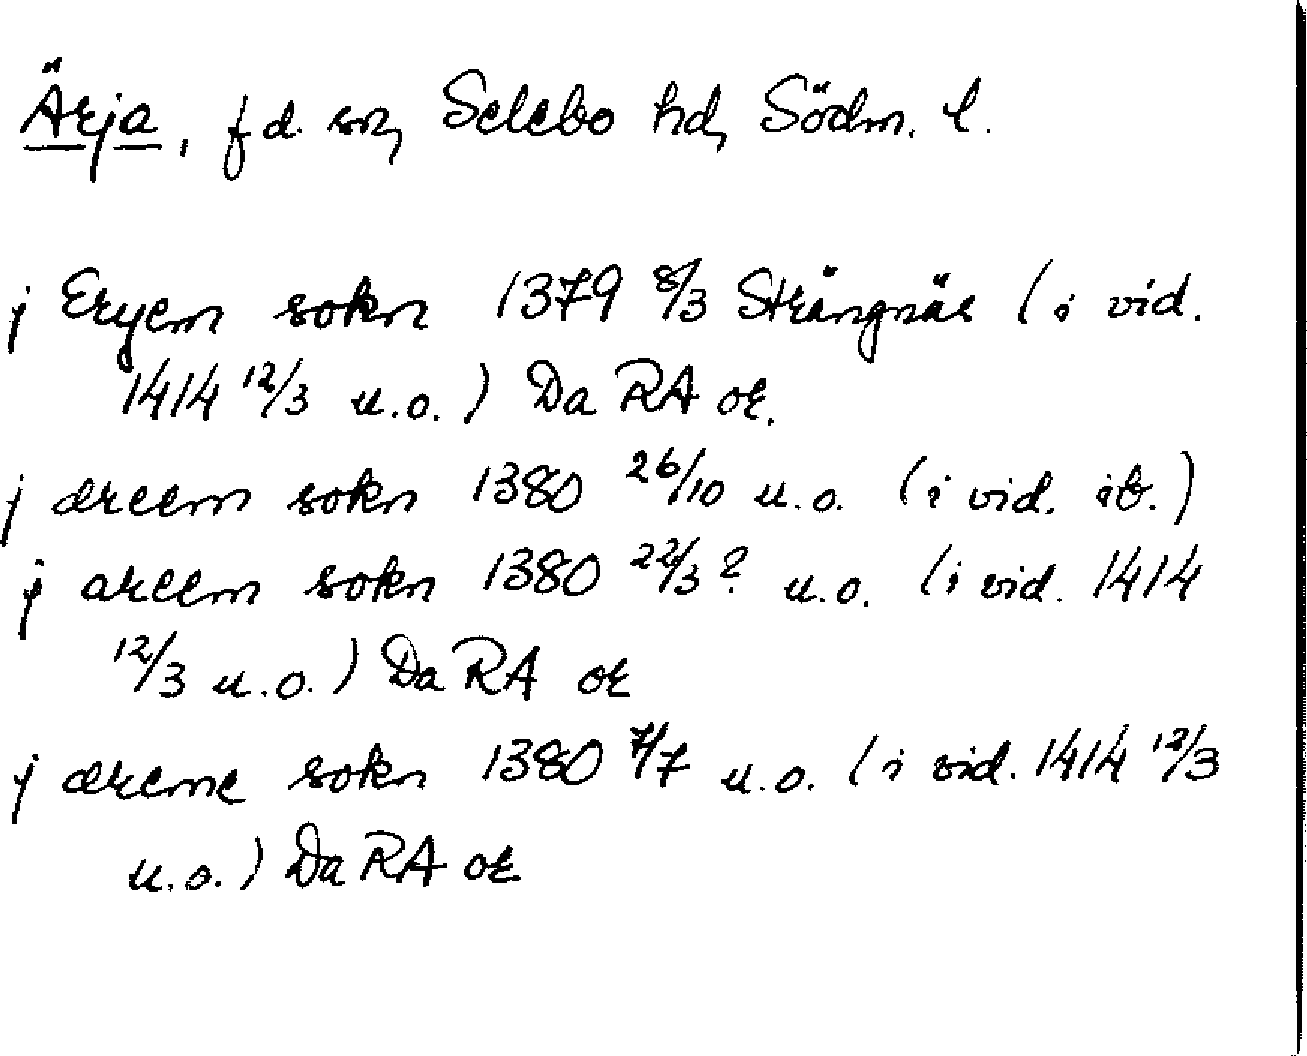 Ärja, f d. sn, Selebo hd, Södm. l.
j Eryem sokn 1379 8/3 Strängnäs (i vid.
1414 12/3 u.o.) Da RA or.
j æreem sokn 1380 26/10 u.o. (i vid. ib.)
j areem sokn 1380 22/3? u.o. (i vid. 1414
12/3 u.o.) Da RA or
j æreme sokn 1380 7/7 u.o. (i vid. 1414 12/3
u.o.) Da RA or